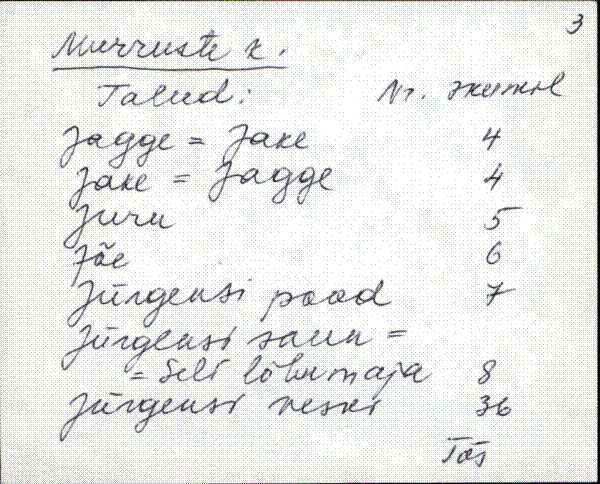 3
Murruste k.
Talud: Nr. skeemil
Jagge = Jake 4
Jake = Jagge 4
Juru 5
Jõe 6
Jürgensi pood 7
Jürgensi saun =
= Seli lõbumaja 8
Jürgensi veski 36